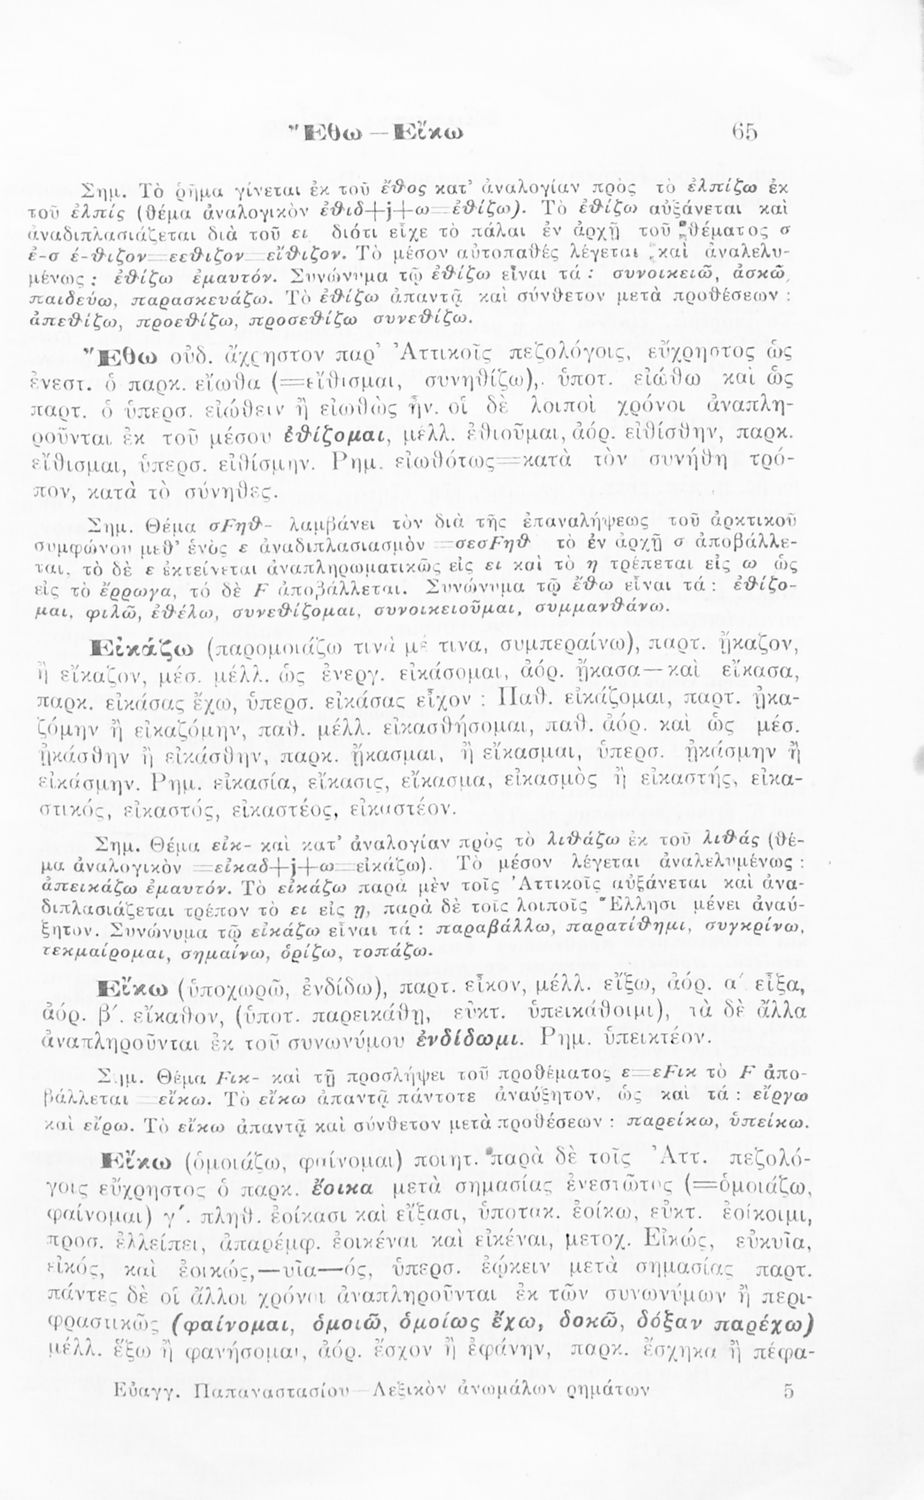 Ἔθω — Εἴκω 65
Σημ. Τὸ ῥῆμα γίνεται ἐκ τοῦ ἔθος κατ' ἀναλογίαν πρὸς τὸ ἐλπίζω ἐκ
τοῦ ἐλπίς (θέμα ἀναλογικὸν ἐθιδ+j+ω=ἐθίζω). Τὸ ἐθίζω αὐξάνεται καὶ
ἀναδιπλασιάζεται διὰ τοῦ ει διότι εἶχε τὸ πάλαι ἐν ἀρχῇ τοῦ θέματος σ
ἐ-σ έ-θιζον=εεθιζον=εἴθιζον. Τὸ μέσον αὐτοπαθὲς λέγεται καὶ ἀναλελυ-
μένως : ἐθίζω ἐμαυτόν. Συνώνυμα τῷ ἐθίζω εἶναι τά : συνοικειῶ, ἀσκῶ,
παιδεύω, παρασκευάζω. Τὸ ἐθίζω ἀπαντᾷ καὶ σύνθετον μετὰ προθέσεων :
ἀπεθίζω, προεθίζω, προσεθίζω συνεθίζω.
Ἔθω οὐδ. ἄχρηστον παρ' Ἀττικοῖς πεζολόγοις, εὔχρηστος ὡς
ἐνεστ. ὁ παρκ. εἴωθα (=εἴθισμαι, συνηθίζω),. ὑποτ. εἰώθω καὶ ὡς
παρτ. ὁ ὑπερσ. εἰώθειν ἢ εἰωθὼς ἦν. οἱ δὲ λοιποὶ χρόνοι ἀναπλη-
ροῦνται ἐκ τοῦ μέσου ἐθίζομαι, μέλλ. ἐθιοῦμαι, ἀόρ. εἰθίσθην, παρκ.
εἴθισμαι, ὑπερσ. εἰθίσμην. Ρημ. εἰωθότως=κατὰ τὸν συνήθη τρό-
πον, κατὰ τὸ σύνηθες.
Σημ. Θέμα σFηθ- λαμβάνει τὸν διὰ τῆς ἐπαναλήψεως τοῦ ἀρκτικοῦ
συμφώνου μεθ' ἑνὸς ε ἀναδιπλασιασμὸν =σεσFηθ τὸ ἐν ἀρχῇ σ ἀποβάλλε-
ται, τὸ δὲ ε ἐκτείνεται ἀναπληρωματικῶς εἰς ει καὶ τὸ η τρέπεται εἰς ω ὡς
εἰς τὸ ἔρρωγα, τὸ δὲ F ἀποβάλλεται. Συνώνυμα τῷ ἔθω εἶναι τά : ἐθίζο-
μαι, φιλῶ, ἐθέλω, συνεθίζομαι, συνοικειοῦμαι, συμμανθάνω.
Εἰκάζω (παρομοιάζω τινὰ μέ τινα, συμπεραίνω), παρτ. ᾔκαζον,
ἢ εἴκαζον, μέσ. μέλλ. ὡς ἐνεργ. εἰκάσομαι, ἀόρ. ᾔκασα—καὶ εἴκασα,
παρκ. εἰκάσας ἔχω, ὑπερσ. εἰκάσας εἶχον : Παθ. εἰκάζομαι, παρτ. ᾐκα-
ζόμην ἢ εἰκαζόμην, παθ. μέλλ. εἰκασθήσομαι, παθ. ἀόρ. καὶ ὡς μέσ.
ᾐκάσθην ἢ εἰκάσθην, παρκ. ᾔκασμαι, ἢ εἴκασμαι, ὑπερσ. ᾐκάσμην ἢ
εἰκάσμην. Ρημ. εἰκασία, εἴκασις, εἴκασμα, εἰκασμὸς ἢ εἰκαστής, εἰκα-
στικός, εἰκαστός, εἰκαστέος, εἰκαστέον.
Σημ. Θέμα εἰκ- καὶ κατ' ἀναλογίαν πρὸς τὸ λιθάζω ἐκ τοῦ λιθάς (θέ-
μα ἀναλογικὸν =εἰκαδ+j+ω=εἰκάζω). Τὸ μέσον λέγεται ἀναλελυμένως :
ἀπεικάζω ἐμαυτόν. Τὸ εἰκάζω παρὰ μὲν τοῖς Ἀττικοῖς αὐξάνεται καὶ ἀνα-
διπλασιάζεται τρέπον τὸ ει εἰς ῃ, παρὰ δὲ τοῖς λοιποῖς Ἕλλησι μένει ἀναύ-
ξητον. Συνώνυμα τῷ εἰκάζω εἶναι τά : παραβάλλω, παρατίθημι, συγκρίνω,
τεκμαίρομαι, σημαίνω, ὁρίζω, τοπάζω.
Εἴκω (ὑποχωρῶ, ἐνδίδω), παρτ. εἶκον, μέλλ. εἴξω, ἀόρ. α' εἶξα,
ἀόρ. β'. εἴκαθον, (ὑποτ. παρεικάθῃ, εὐκτ. ὑπεικάθοιμι), τὰ δὲ ἄλλα
ἀναπληροῦνται ἐκ τοῦ συνωνύμου ἐνδίδωμι. Ρημ. ὑπεικτέον.
Σημ. Θέμα Fικ- καὶ τῇ προσλήψει τοῦ προθέματος ε=εFικ τὸ F ἀπο-
βάλλεται =εἴκω. Τὸ εἴκω ἀπαντᾷ πάντοτε ἀναύξητον, ὡς καὶ τά : εἴργω
καὶ εἴρω. Τὸ εἴκω ἀπαντᾷ καὶ σύνθετον μετὰ προθέσεων : παρείκω, ὑπείκω.
Εἴκω (ὁμοιάζω, φαίνομαι) ποιητ. παρὰ δὲ τοῖς Ἀττ. πεζολό-
γοις εὔχρηστος ὁ παρκ. ἔοικα μετὰ σημασίας ἐνεστῶτος (=ὁμοιάζω,
φαίνομαι) γ'. πληθ. ἐοίκασι καὶ εἴξασι, ὑποτακ. ἐοίκω, εὐκτ. ἐοίκοιμι,
προσ. ἐλλείπει, ἀπαρέμφ. ἐοικέναι καὶ εἰκέναι, μετοχ. Εἰκώς, εὐκυῖα,
εἰκός, καὶ ἐοικώς,—υῖα—ός, ὑπερσ. ἐῴκειν μετὰ σημασίας παρτ.
πάντες δὲ οἱ ἄλλοι χρόνοι ἀναπληροῦνται ἐκ τῶν συνωνύμων ἢ περι-
φραστικῶς (φαίνομαι, ὁμοιῶ, ὁμοίως ἔχω, δοκῶ, δόξαν παρέχω)
μέλλ. ἕξω ἢ φανήσομαι, ἀόρ. ἔσχον ἢ ἐφάνην, παρκ. ἔσχηκα ἢ πέφα-
Εὐαγγ. Παπαναστασίου Λεξικὸν ἀνωμάλων ρημάτων 5